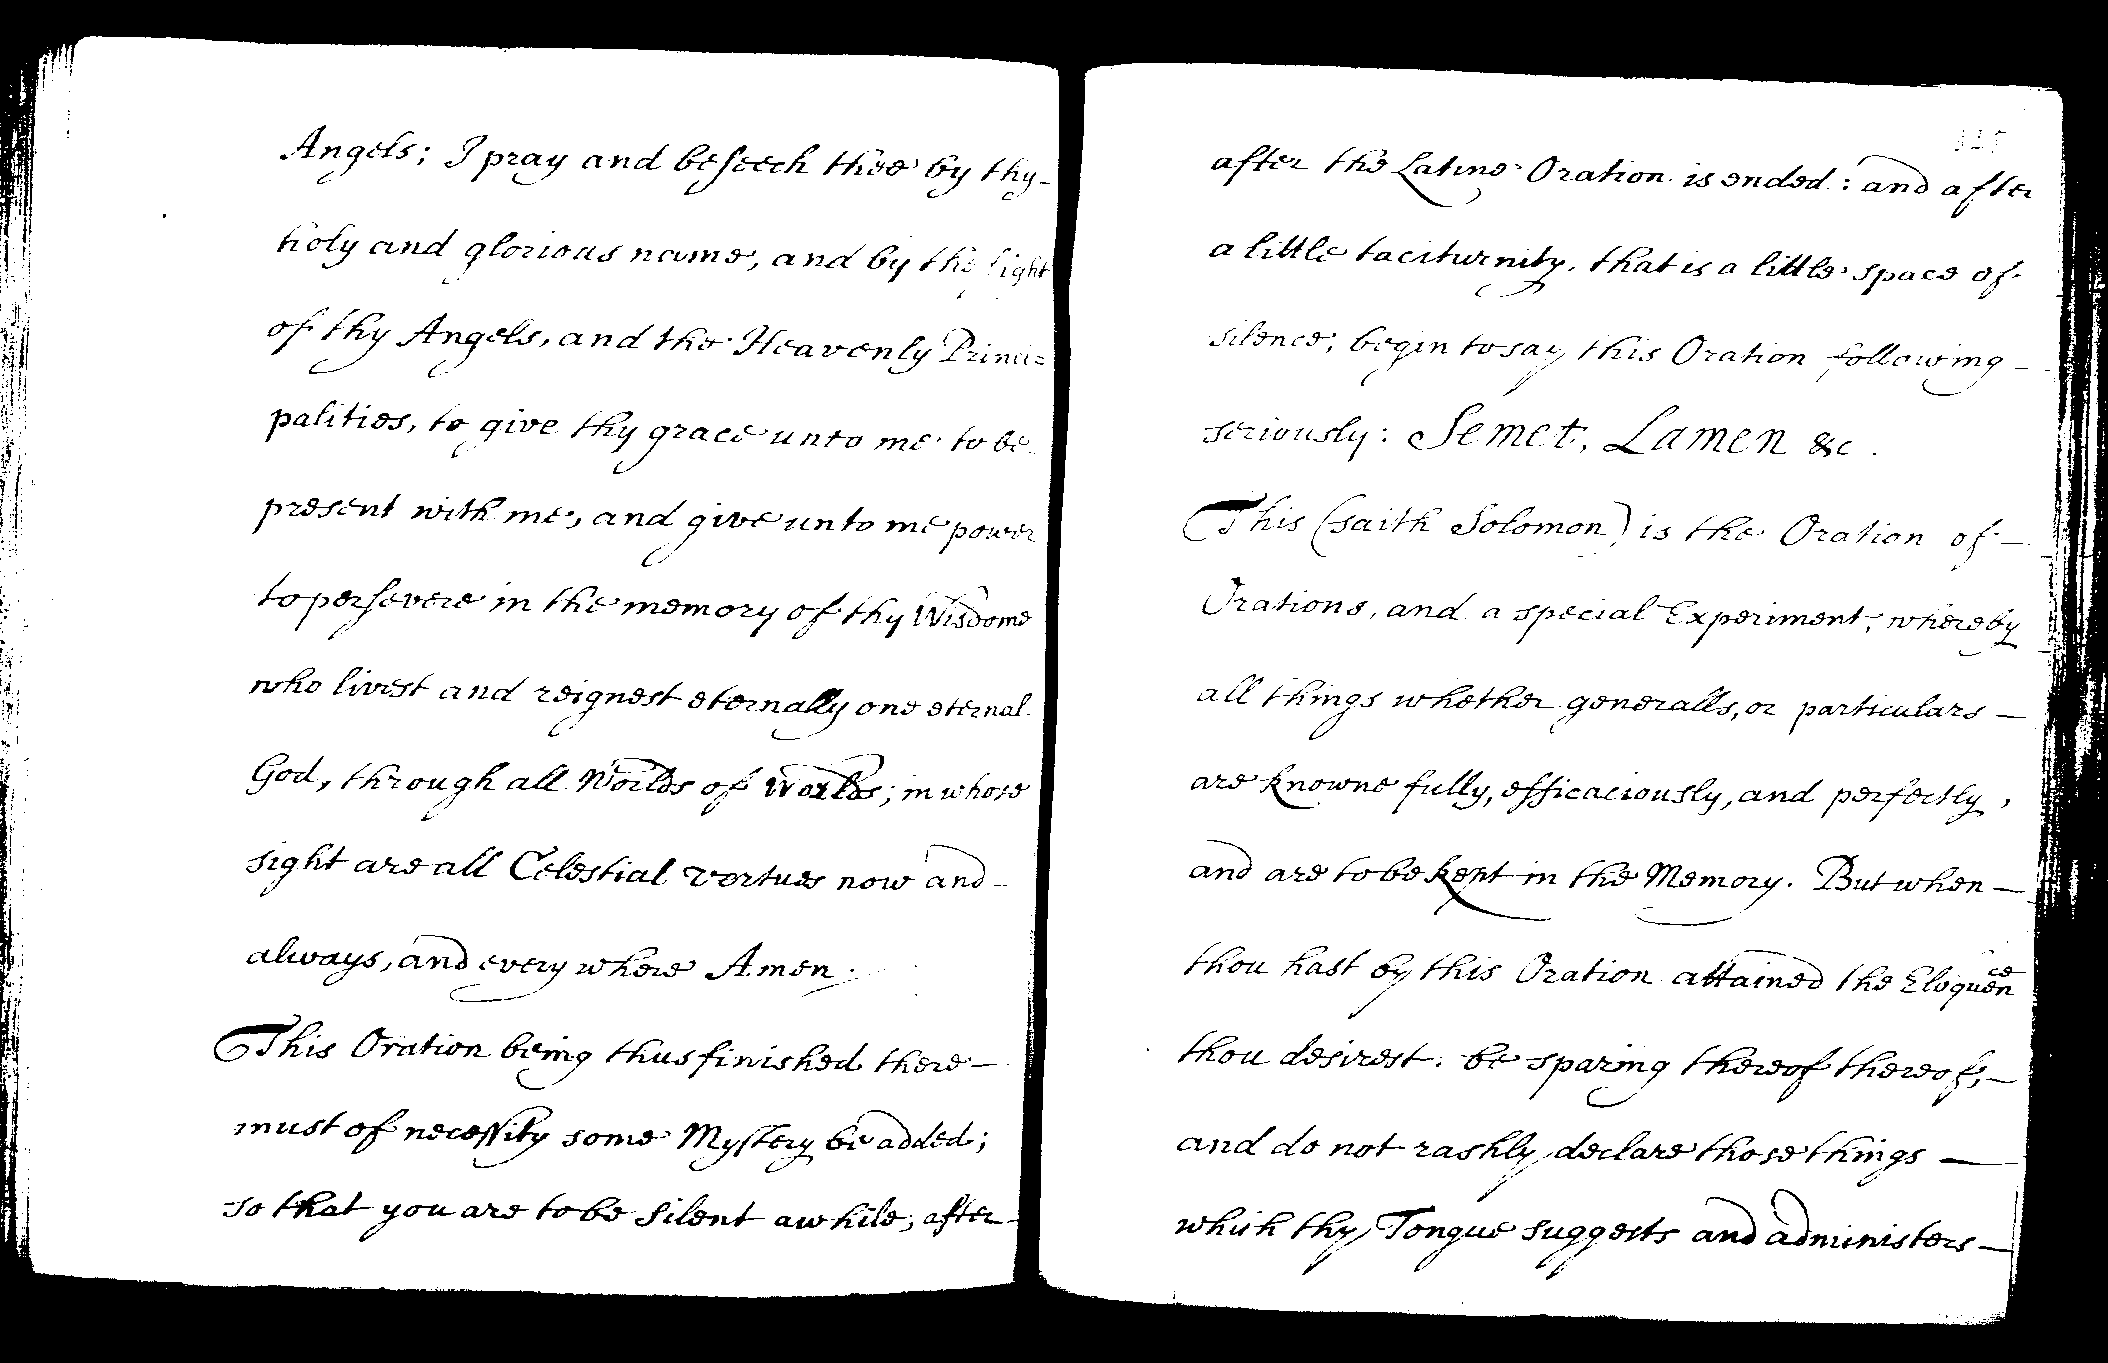 Angels; I pray and beseech thee by thy-
holy and glorious name, and by the sight
of thy Angels, and the Heavenly Princi=
palities, to give thy grace unto me to be
present with me, and give unto me power
to persevere in the memory of thy Wisdome
who livest and reignest eternally one eternal
God, through all Worlds of Worlds; in whose
sight are all Celestial vertues now and -
always, and every where Amen.
This Oration being thus finished there -
must of necessity some Mystery be added;
so that you are to be silent awhile, after -
after the Latine Oration is ended: and after
a little taciturnity, that is a little space of
silence, begin to say this Oration following -
seriously: Semet, Lamen &c.
This (saith Solomon) is the Oration of -
Orations, and a special Experiment, whereby
all things whether generalls, or particulars -
are knowne fully, efficaciously, and perfectly,
and are to be kept in the Memory. But when -
thou hast by this Oration attained the Eloquence
thou desirest. be sparing thereof thereof, -
and do not rashly declare those things -
which thy Tongue suggests and administers -